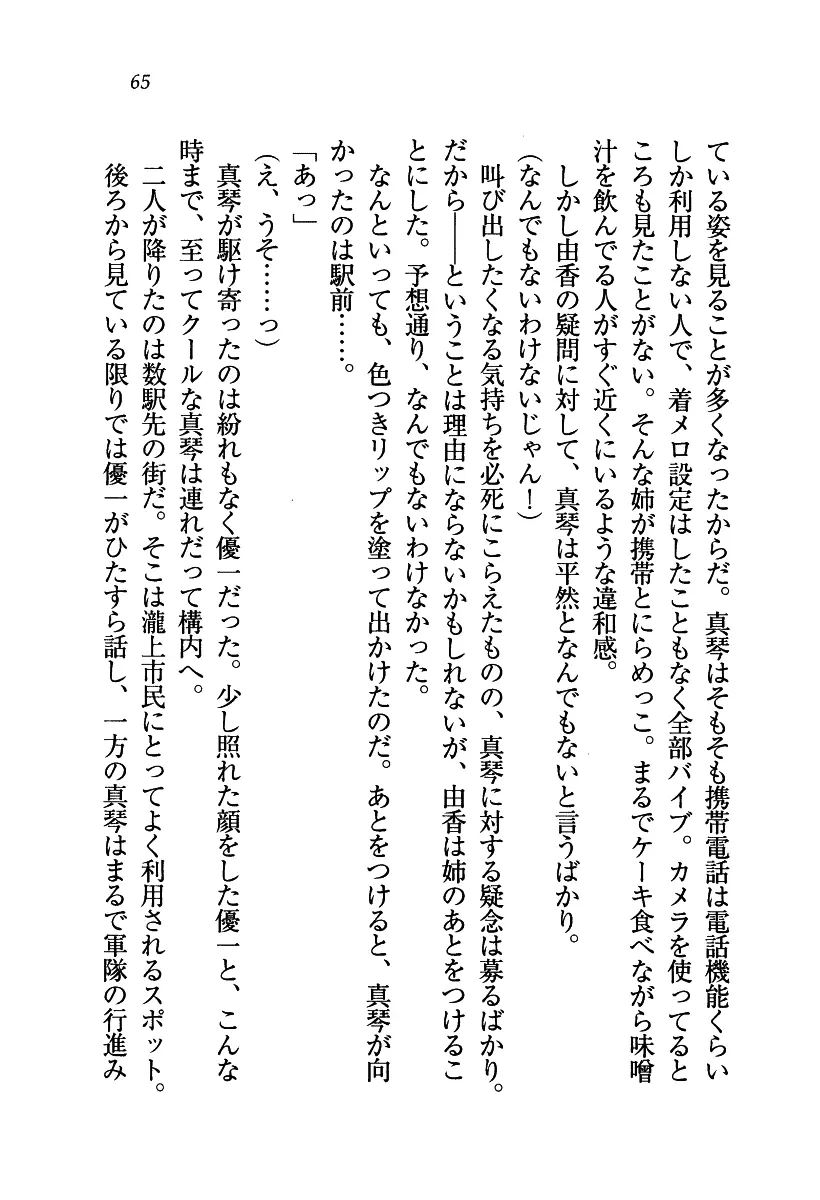 65
ている姿を見ることが多くなったからだ。真琴はそもそも携帯電話は電話機能くらい
しか利用しない人で、着メロ設定はしたこともなく全部バイブ。カメラを使ってると
ころも見たことがない。そんな姉が携帯とにらめっこ。まるでケーキ食べながら味噌
汁を飲んでる人がすぐ近くにいるような違和感。
しかし由香の疑問に対して、真琴は平然となんでもないと言うばかり。
(なんでもないわけないじゃん!)
叫び出したくなる気持ちを必死にこらえたものの、真琴に対する疑念は募るばかり。
だから――ということは理由にならないかもしれないが、由香は姉のあとをつけるこ
とにした。予想通り、なんでもないわけなかった。
なんといっても、色つきリップを塗って出かけたのだ。あとをつけると、真琴が向
かったのは駅前……。
「あっ」
(え、うそ……っ)
真琴が駆け寄ったのは紛れもなく優一だった。少し照れた顔をした優一と、こんな
時まで、至ってクールな真琴は連れだって構内へ。
二人が降りたのは数駅先の街だ。そこは瀧上市民にとってよく利用されるスポット。
後ろから見ている限りでは優一がひたすら話し、一方の真琴はまるで軍隊の行進み